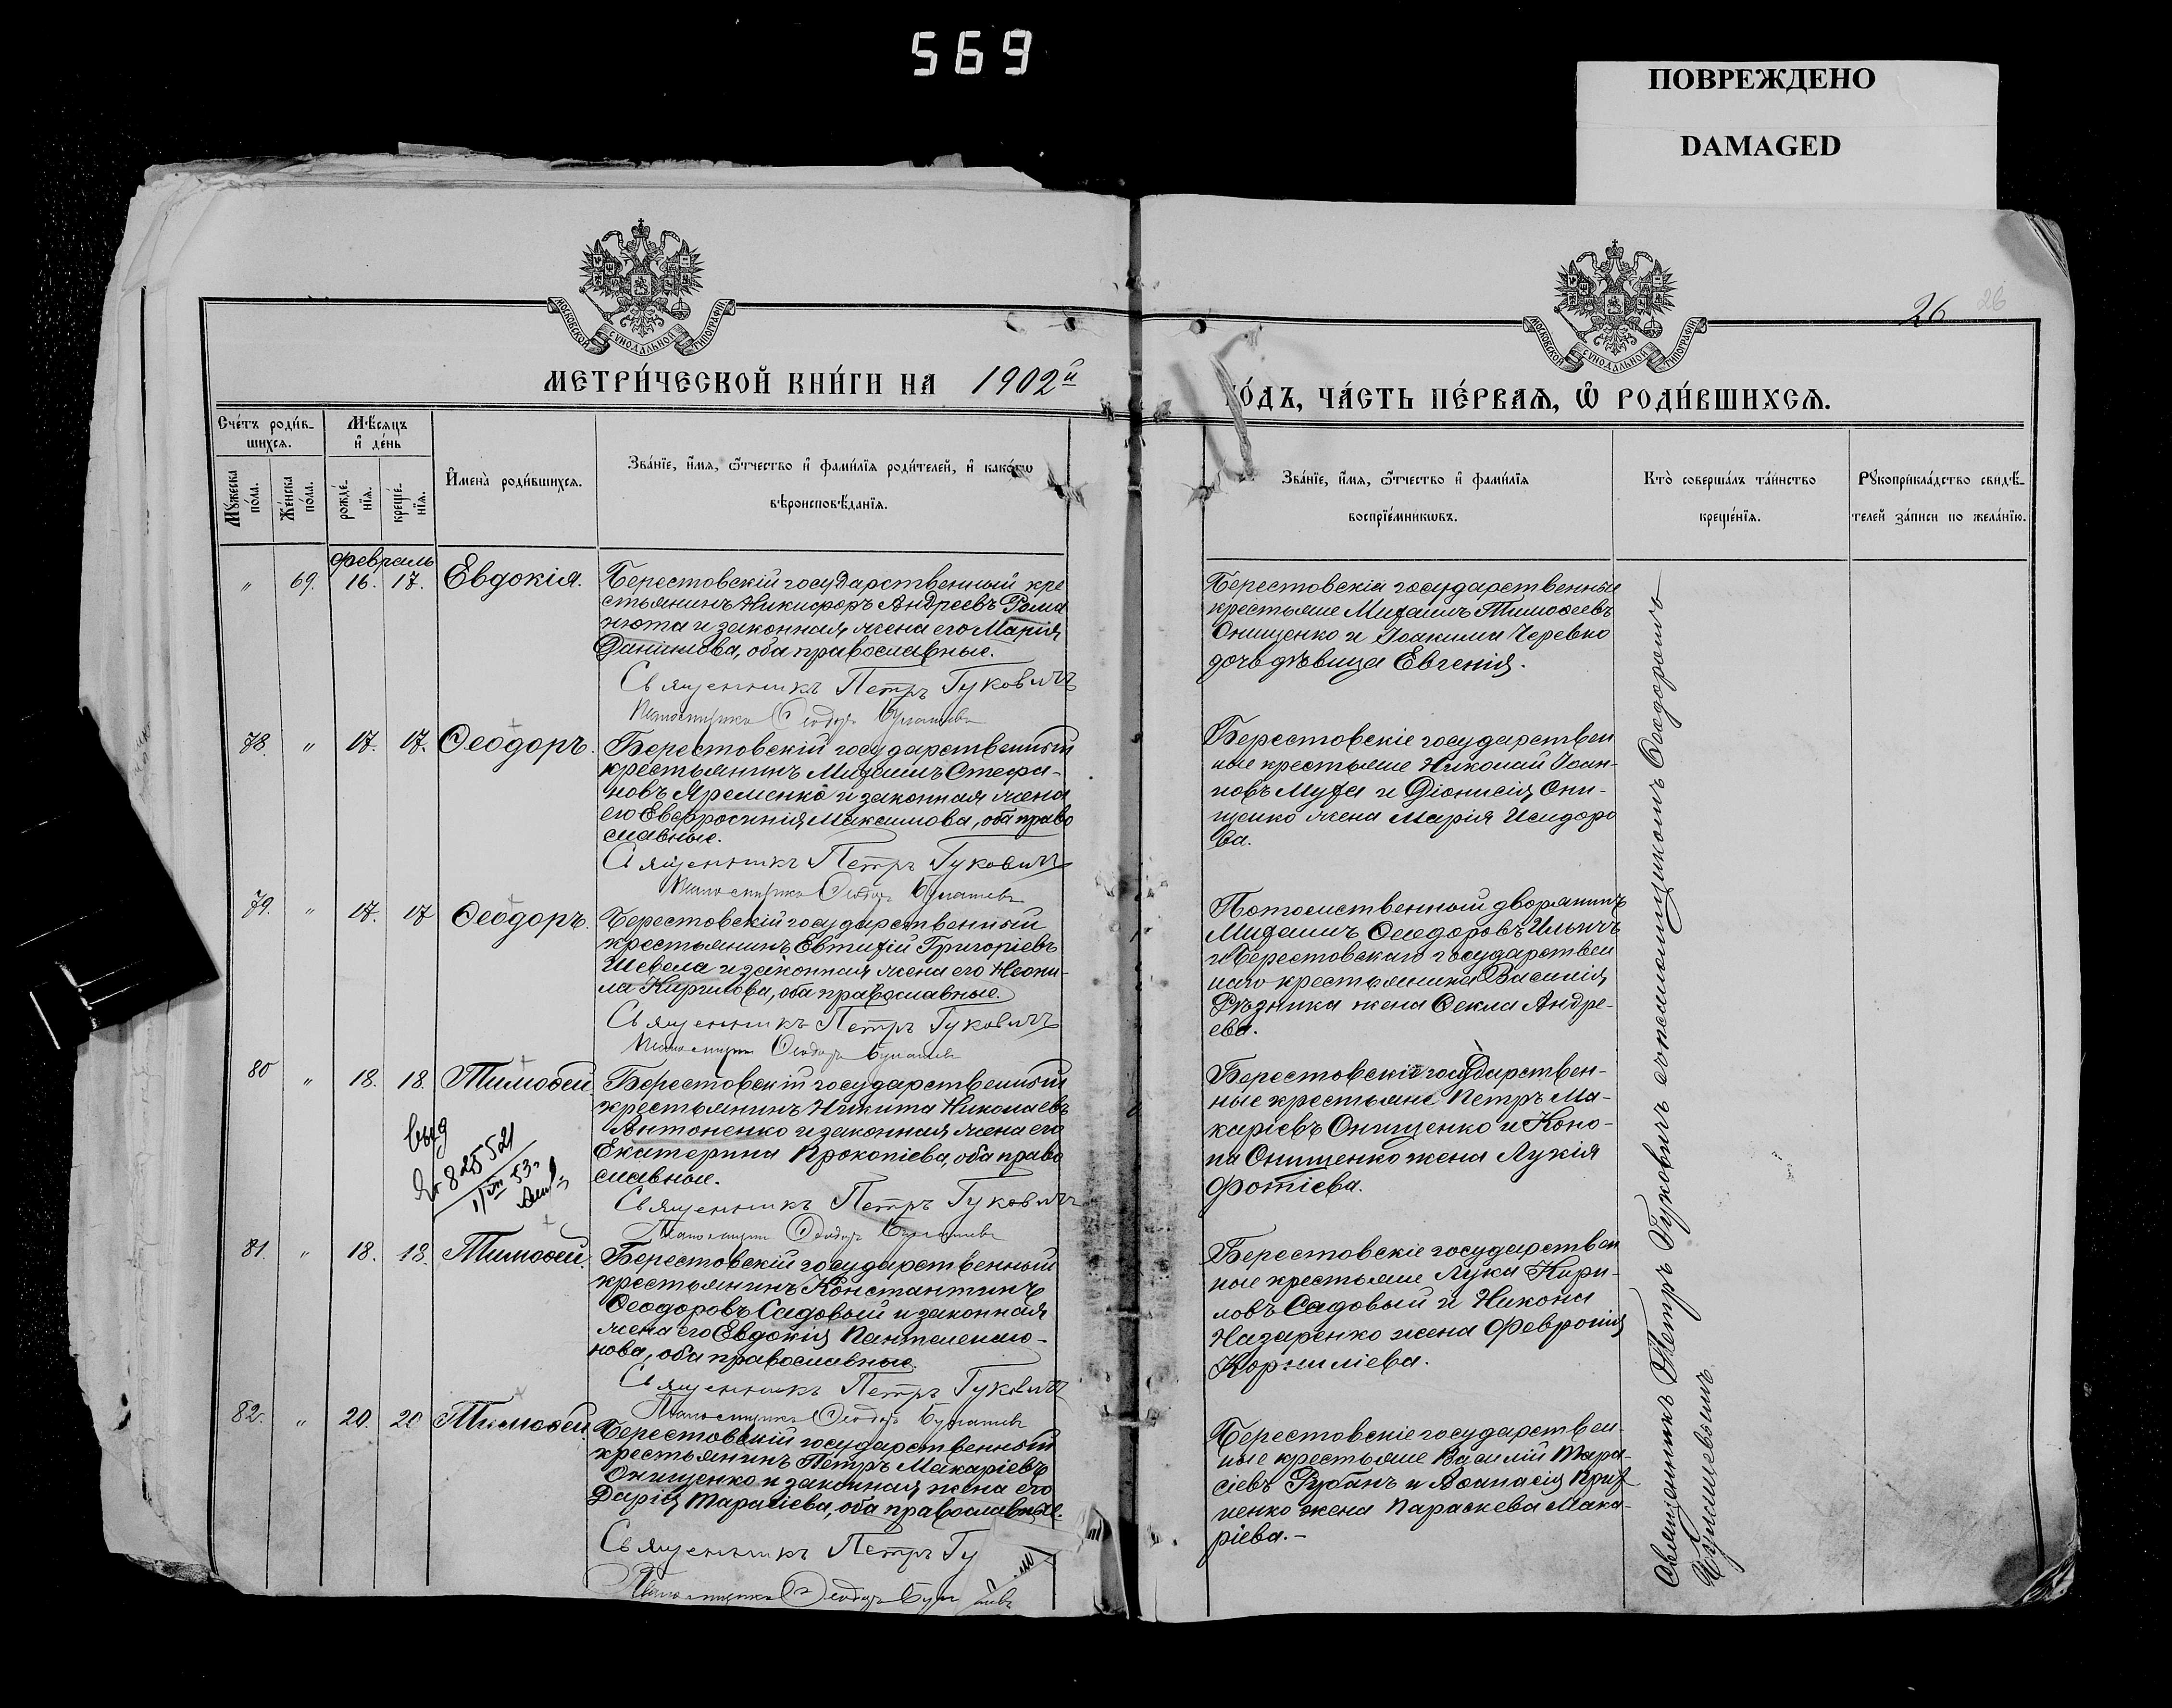 569
ПОВРЕЖДЕНО
DAMAGED
МОСКОВСКОЙ СѴНОДАЛЬНОЙ ТИПОГРАФІИ
МОСКОВСКОЙ СѴНОДАЛЬНОЙ ТИПОГРАФІИ
26 26
МЕТРИ́ЧЕСКОЙ КНИ́ГИ НА 1902й
ГО́ДЪ, ЧА́СТЬ ПЕ́РВАЯ, Ѡ҆ РОДИ́ВШИХСЯ.
Сче́тъ роди́в-
шихся.
Мѣ́сяцъ
и҆ де́нь
Мꙋ́жеска
по́ла.
Же́нска
по́ла.
рожде́-
нїя.
креще́-
нїя.
И҆мена̀ роди́вшихся.
Зва́нїе, и҆́мя, ѻ҆́тчество и҆ фами́лїя роди́телей, и҆ како́гѡ
вѣроисповѣ́данїя.
Зва́нїе, и҆́мя, ѻ҆́тчество и҆ фами́лїя
воспрїе́мникѡвъ.
Кто̀ соверша́лъ та́инство
креще́нїя.
Рꙋкоприкла́дство свидѣ́-
телей за́писи по жела́нїю.
февраль
" 69. 16. 17. Евдокія.
Берестовскій государственный кре
стьянинъ Никифоръ Андреевъ Рома
нюта и законная жена его Марія
Даниилова, оба православные.
Священникъ Петръ Гуковичъ
Псаломщикъ Ѳеодоръ
Берестовскіе государственные
крестьяне Михаилъ Тимоѳеевъ
Онищенко и Іоакима Черевко
дочь дѣвица Евгенія.
78. " 17. 17. Ѳеодоръ.
Берестовскій государственный
крестьянинъ Михаилъ Стефа-
новъ Яременко и законная жена
его Евфросинія Максимова, оба право
славные.
Священникъ Петръ Гуковичъ
Псаломщикъ Ѳеодоръ
Берестовскіе государствен
ные крестьяне Николай Іоан-
новъ Муха и Діонисія Они-
щенко жена Марія Исидоро
ва.
79. " 17. 17 Ѳеодоръ.
Берестовскій государственный
крестьянинъ Евтихій Григоріевъ
Шевела и законная жена его Неони-
ла Кирилова, оба православные.
Священникъ Петръ Гуковичъ
Псаломщикъ Ѳеодоръ
Потомственный дворянинъ
Михаилъ Ѳеодоровъ Ильичъ
и Берестовскаго государствен
наго крестьянина Василія
Рѣзника жена Ѳекла Андре-
ева.
80 " 18. 18. Тимоѳей.
Берестовскій государственный
крестьянинъ Никита Николаевъ
Антоненко и законная жена его
Екатерина Прокопіева, оба право
славные.
Священникъ Петръ Гуковичъ
Псаломщикъ Ѳеодоръ
825521
Берестовскіе государствен-
ные крестьяне Петръ Ма-
каріевъ Онищенко и Коно-
на Онищенко жена Лукія
Фотіева.
81. " 18. 18. Тимоѳей.
Берестовскій государственный
крестьянинъ Константинъ
Ѳеодоровъ Садовый и законная
жена его Евдокія Пантелеимо-
нова, оба православные.
Священникъ Петръ Гуковичъ
Псаломщикъ Ѳеодоръ
Берестовскіе государствен
ные крестьяне Лука Кири-
ловъ Садовый и Никона
Назаренко жена Февронія
Корниліева.
82. " 20. 20 Тимоѳей.
Берестовскій государственный
крестьянинъ Петръ Макаріевъ
Онищенко и законная жена его
Дарія Тарасіева, оба православные.
Священникъ Петръ Гу
Псаломщикъ Ѳеодоръ
Берестовскіе государствен-
ные крестьяне Василій Тара-
сіевъ Рубанъ и Аѳанасія Прих
ненко жена Параскева Мака-
ріева.-
Священникъ Петръ Гуковичъ съ псаломщикомъ Ѳеодоромъ